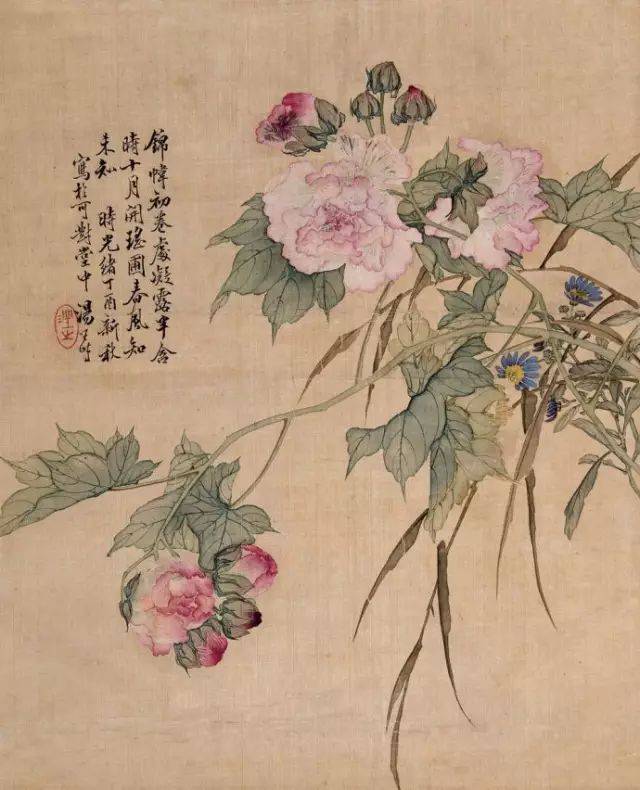 錦幃初卷處凝露半含
時十月開瑤圃春風知
未知 時光緒丁酉新秋
寫於可對堂中湯世澍
潤之